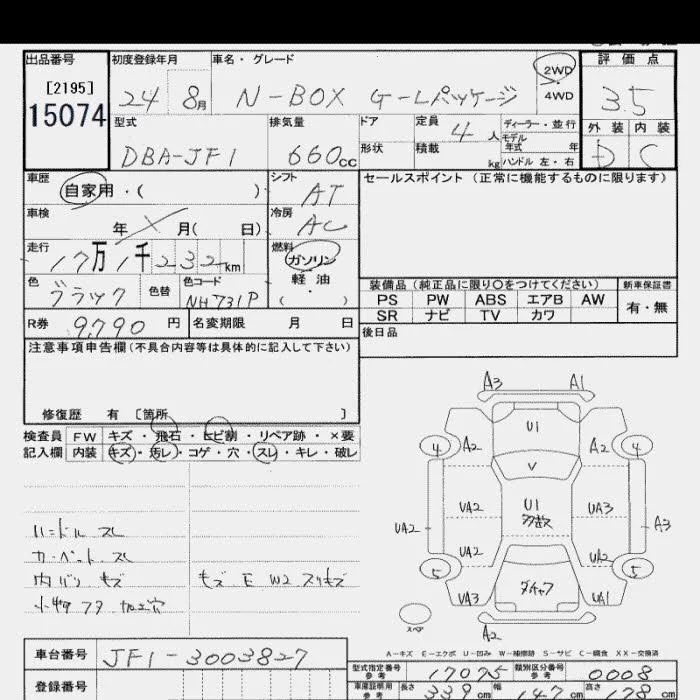 出品番号 初度登録年月 車名・グレード 2WD 評価点
[2195] 24 8月 N-BOX G-Lパッケージ 4WD 3.5
15074 型式 排気量 ドア 定員 4人 ディーラー・並行 外装 内装
モデル年式 年
DBA-JF1 660cc 形状 積載 kg ハンドル 左・右 D C
車歴 シフト セールスポイント (正常に機能するものに限ります)
自家用・( ) AT
車検 冷房
年 月( 日) AC
走行 燃料
17万1千232km ガソリン
色 色替 色コード 軽油 装備品(純正品に限り○をつけてください) 新車保証書
ブラック NH731P ( ) PS PW ABS エアB AW 有・無
SR ナビ TV カワ
R券 9,790円 名変期限 月 日 後日品
注意事項申告欄(不具合内容等は具体的に記入して下さい)
修復歴 有 [箇所 ]
検査員 FW キズ・飛石・ヒビ割・リペア跡・×要
記入欄 内装 キズ・汚レ・コゲ・穴・スレ・キレ・破レ
A3 A1
U1
4 A2 A2 4
V
UA2 U1 UA3
UA2 A3
UA2 UA2
5 5
UA3 UA1
スペア
A2
ハンドル スレ
カーペット スレ
内バリ キズ
小物フタ 加工穴
キズ E W2 スリキズ
A-キズ E-エクボ U-凹み W-補修跡 S-サビ C-腐食 XX-交換済
車台番号 JF1-3003827
型式指定番号 参考 17075 類別区分番号 参考 0008
登録番号 車庫証明用 参考 長さ 339cm 幅 147cm 高さ 178cm